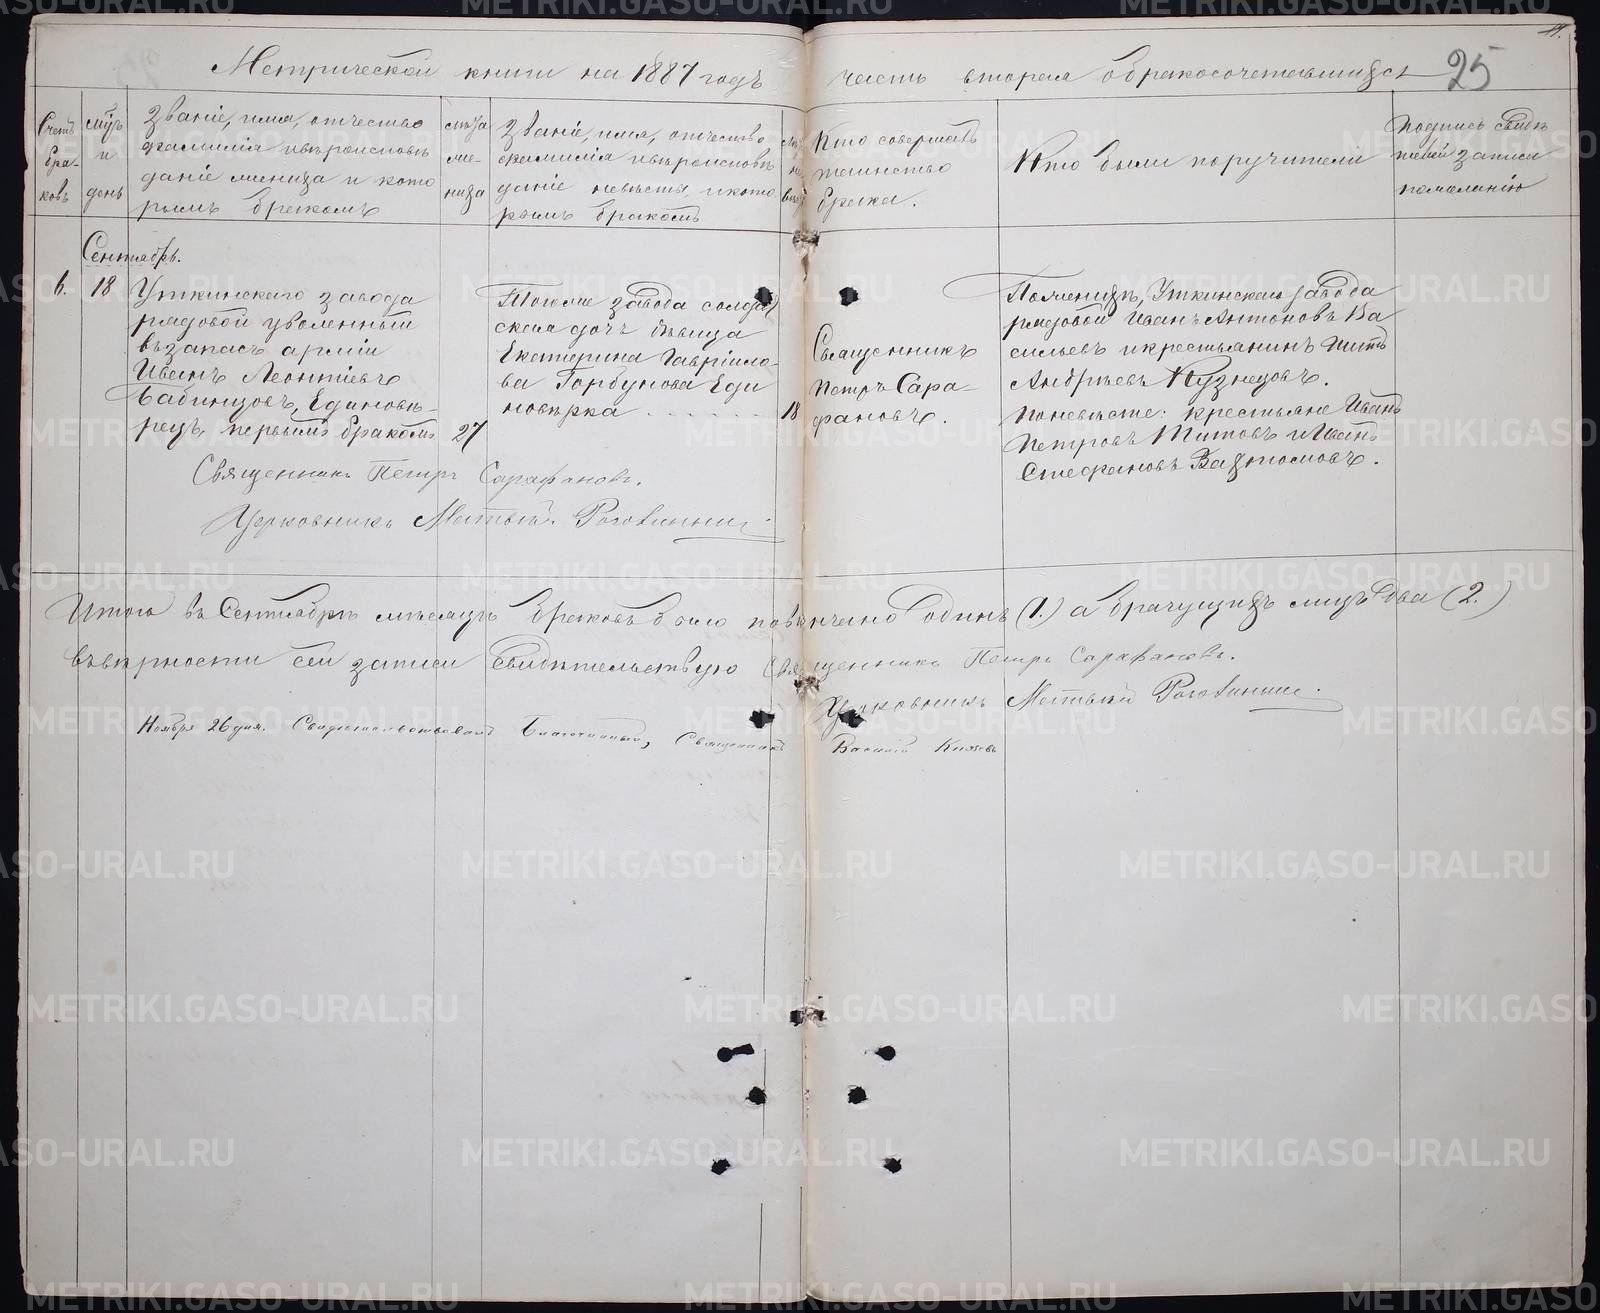 Метрической книги на 1887 годъ часть вторая о бракосочетавшихся 25
Счетъ браковъ
Мѣсяцъ и день
Званіе, имя, отчество
фамилія и вѣроисповѣ
даніе жениха и кото
рымъ бракомъ
лѣта
же-
ниха
Званіе, имя, отчество
фамилія и вѣроисповѣ
даніе невѣсты, и кото
рымъ бракомъ
Кто совершалъ
таинство
брака.
Кто были поручители
Подпись свидѣ
телей записи
по желанію
Сентябрь.
6. 18
Уткинскаго завода
рядовой уволенный
въ запасъ арміи
Иванъ Леонтіевъ
Бабинцовъ, Единовѣ-
рецъ, первымъ бракомъ
27
Тогоже завода солдат
ская дочь дѣвица
Екатерина Гавріило-
ва Горбунова Еди
новѣрка
18
Священникъ
Петръ Сара-
фановъ.
По женихѣ, Уткинскаго завода
рядовой Иванъ Антоновъ Ва
сильевъ и крестьянинъ Титъ
Андрѣевъ Кузнецовъ.
по невѣсте: крестьяне Иванъ
Петровъ Титовъ и Иванъ
Стефановъ
Священникъ Петръ Сарафановъ.
Церковникъ Матвѣй
Итого въ Сентябрѣ мѣсяцѣ браковъ было повѣнчано одинъ (1.) а брачущихъ лицъ два (2.)
Въ вѣрности сей записи свидѣтельствую Священникъ Петръ Сарафановъ.
Церковникъ Матвѣй
Ноября 26 дня. Свидѣтельствовалъ Благочинный, Священникъ Василій Князевъ
METRIKI.GASO-URAL.RU